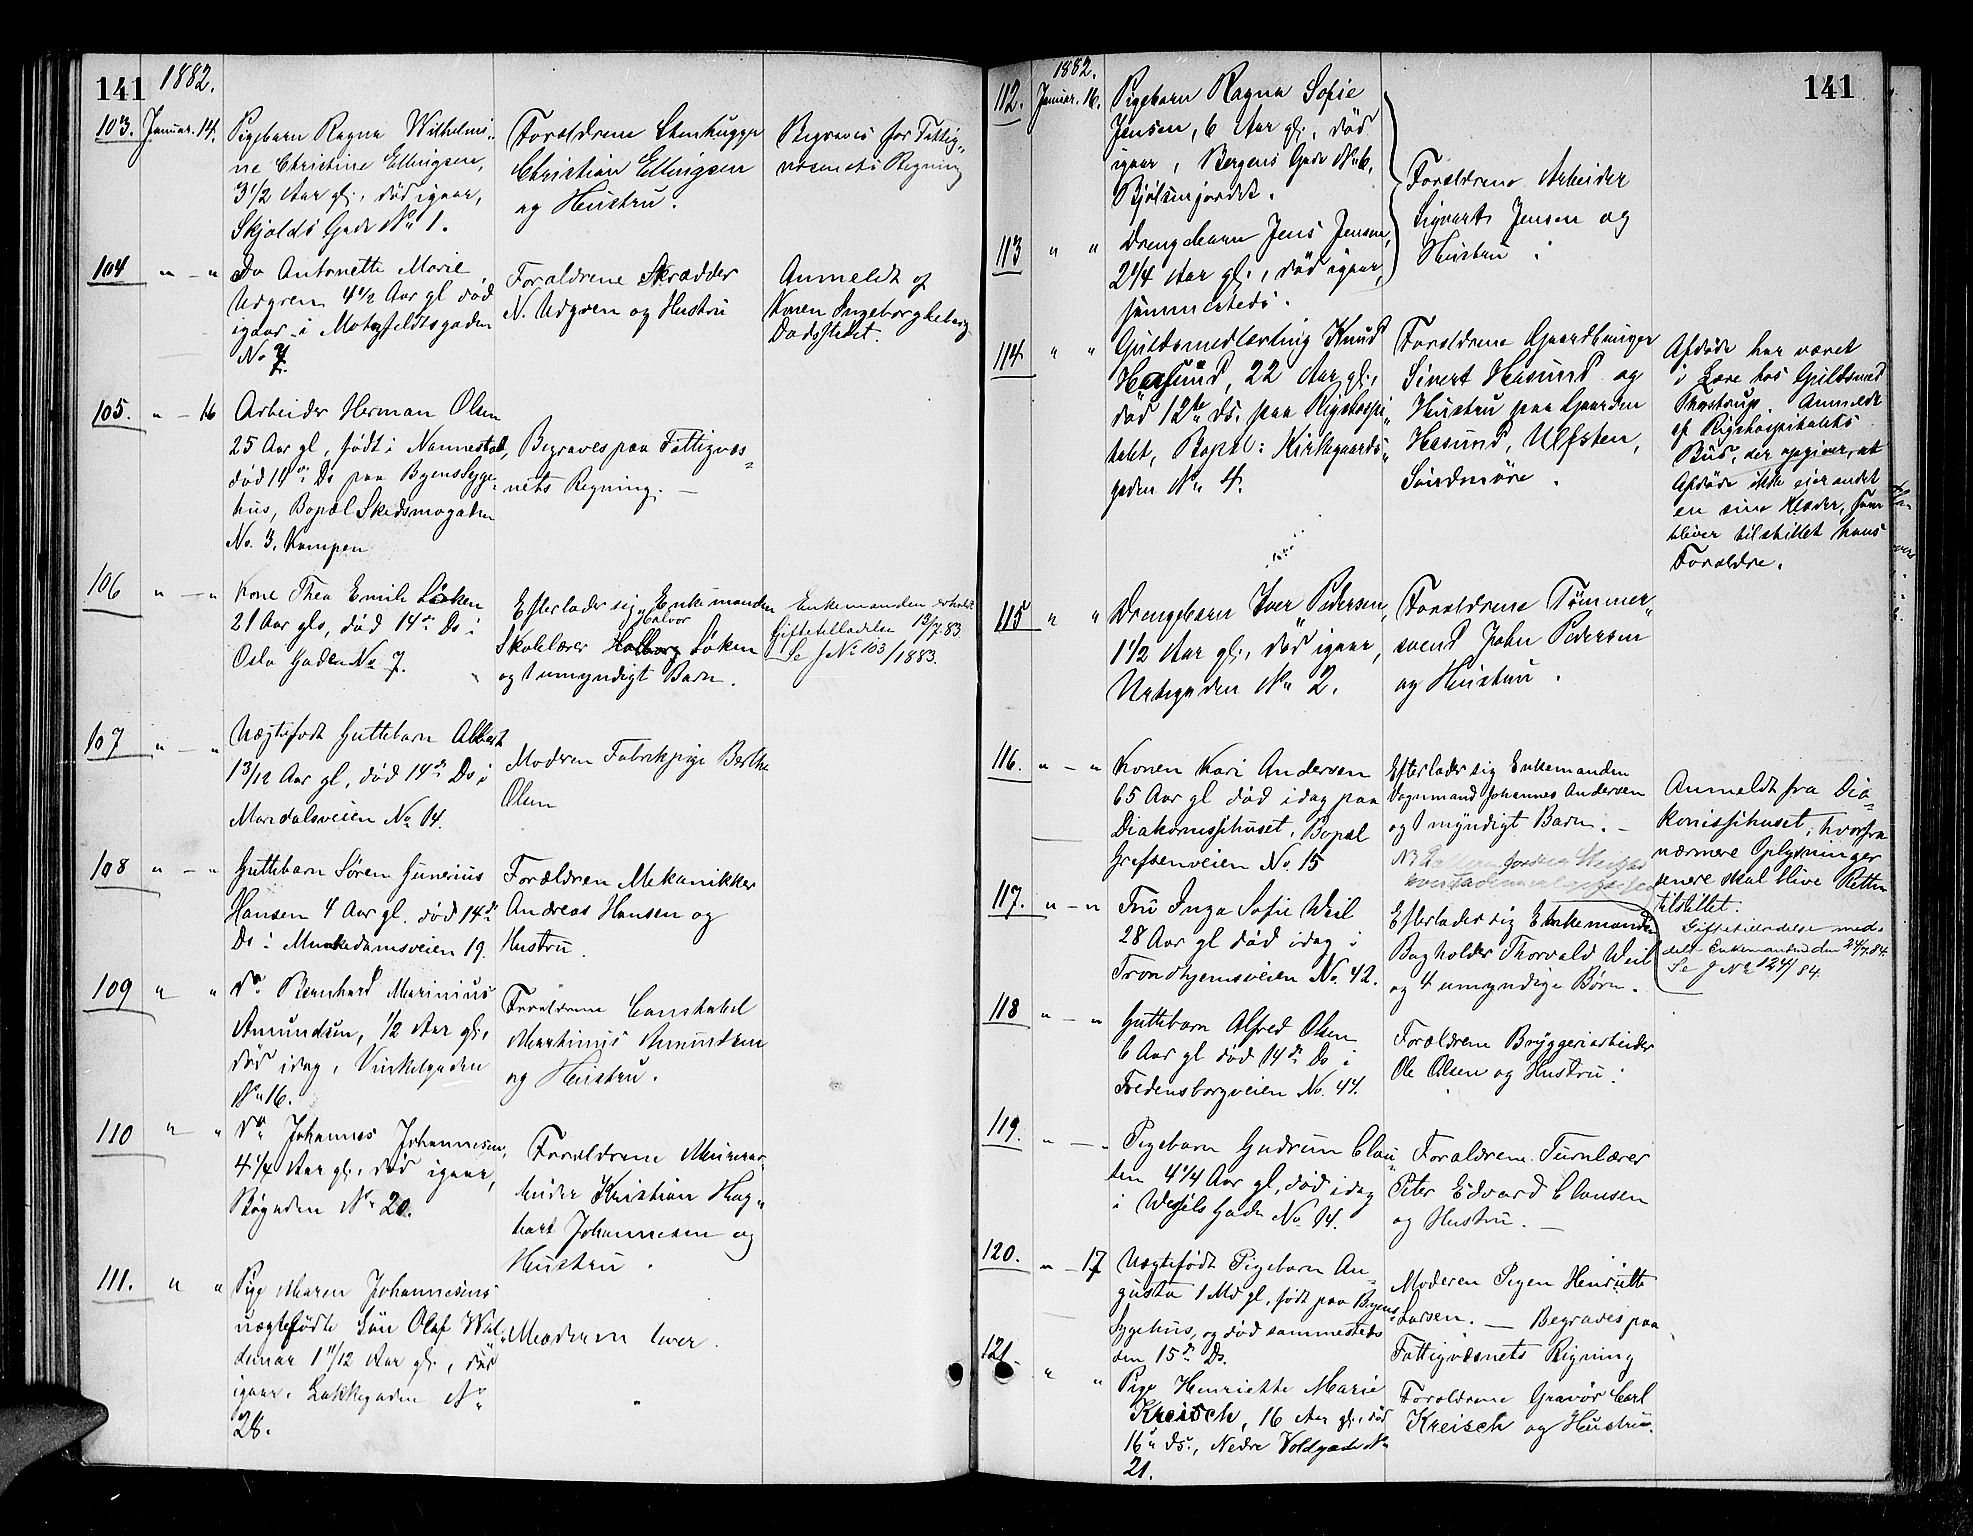 141
1882.
103. Januar. 14.
Pigebarn Ragna Wilhelmi-
ne Christine Ellingsen,
3 1/2 Aar gl., død igaar,
Skjolds Gade No 1.
Forældrene Stenhugger
Christian Ellingsen
og Hustru.
Begraves for Fattig-
væsenets Regning
104 " - "
Do Antonette Marie
Udgren 4 1/2 Aar gl død
igaar i Motzfeldtsgaden
No 7.
Forældrene Skrædder
N. Udgren og Hustru
Anmeldt af
Konen Ingeborg
Dødsstedet.
105. " - 16
Arbeider Herman Olsen
25 Aar gl, født i Nannestad,
død 14de Ds paa Byens Syge-
hus, Bopæl Skedsmogaden
No. 3, Kampen
Begraves paa Fattigvæs-
nets Regning. -
106 " - "
Kone Thea Emilie Løken
21 Aar gl, død 14de Ds i
Oslo Gaden No 7.
Efterlader sig Enkemanden
Halvor
Skolelærer Løken
og 1 umyndigt Barn.
Enkemanden erholdt
Giftetilladelse 13/7.83
Se J No 103/1883.
107 " - "
Uægtefødt Guttebarn Albert
1 3/12 Aar gl, død 14de Ds i
Maridalsveien No 14.
Moderen Fabrikpige Berthe
Olsen
108 " - "
Guttebarn Søren Gunerius
Hansen 4 Aar gl. død 14de
Ds i Munkedamsveien 19.
Forældren Mekanikker
Andreas Hansen og
Hustru.
109 " "
Do Bernhard Marinius
Amundsen, 1/2 Aar gl.,
død idag, Vinkelgaden
No 16.
Forældrene Constabel
Martinius Amundsen
og Hustru.
110 " "
Do Johannes Johannesen,
4 1/4 Aar gl., død igaar,
Bøgaden No 20.
Forældrene Murerar-
beider Kristian Hag-
bart Johannesen og
Hustru.
111. " "
Pige Maren Johannesens
uægtefødte Søn Olaf Wal-
demar 1 11/12 Aar gl., død
igaar. Lakkegaden No
28.
Moderen lever.
141
1882.
112. Januar. 16.
Pigebarn Ragna Sofie
Jensen, 6 Aar gl., død
igaar, Bergens Gade No 6,
Bjølsenjordet.
113 " "
Drengebarn Jens Jensen,
2 1/4 Aar gl., død igaar,
sammesteds.
Forældrene Arbeider
Sigvart Jensen og
Hustru.
114 " "
Guldsmedlærling Knud
Hasund, 22 Aar gl.,
død 12te ds. paa Rigshospi-
talet, Bopæl: Kirkegaards-
gaden No 4.
Forældrene Gaardbruger
Sivert Hasund og
Hustru paa Gaarden
Hasund, Ulfsten,
Søndmøre.
Afdøde har været
i Lære hos Guldsmed
Thostrup. Anmeldt
af Rigshospitalets
Bud, der opgiver, at
Afdøde ikke eier andet
en sine Klæder, som
bliver tilstillet hans
Forældre.
115 " "
Drengebarn Iver Pedersen,
1 1/2 Aar gl., død igaar,
Urtegaden No 2.
Forældrene Tømmer-
svend John Pedersen
og Hustru.
116. " - "
Konen Kari Andersen
65 Aar gl død idag paa
Diakonissehuset, Bopæl
Grefsenveien No. 15
Efterlader sig Enkemanden
Vognmand Johannes Andersen
og 1 myndigt Barn. -
Anmeldt fra Dia-
konissehuset, hvorfra
nærmere Oplysninger
senere skal blive Retten
tilstillet.
117. " - "
Fru Inga Sofie Weil
28 Aar gl død idag i
Trondhjemsveien No. 42.
Efterlader sig Enkemanden
Bogholder Thorvald Weil
og 4 umyndige Børn.
Giftetilladelse med-
delt Enkemanden den 24/7.84.
Se J No 124/84.
118 " - "
Guttebarn Alfred Olsen
6 Aar gl død 14de Ds i
Fredensborgveien No. 44.
Forældrene Bryggeriarbeider
Ole Olsen og Hustru.
119. " - "
Pigebarn Gudrun Clau-
sen 4 1/4 Aar gl, død idag
i Wessels Gade No. 14.
Forældrene Turnlærer
Peter Edvard Clausen
og Hustru. -
120. " - 17
Uægtefødt Pigebarn Au-
gusta 1 Md gl, født paa Byens
Sygehus, og død sammesteds
den 15de Ds.
Moderen Pigen Henriette
Larsen. - Begraves paa
Fattigvæsnets Rigning
121. " "
Pige Henriette Marie
Kreisch, 16 Aar gl., død
16de ds., Nedre Voldgade No
21.
Forældrene Gravør Carl
Kreisch og Hustru.